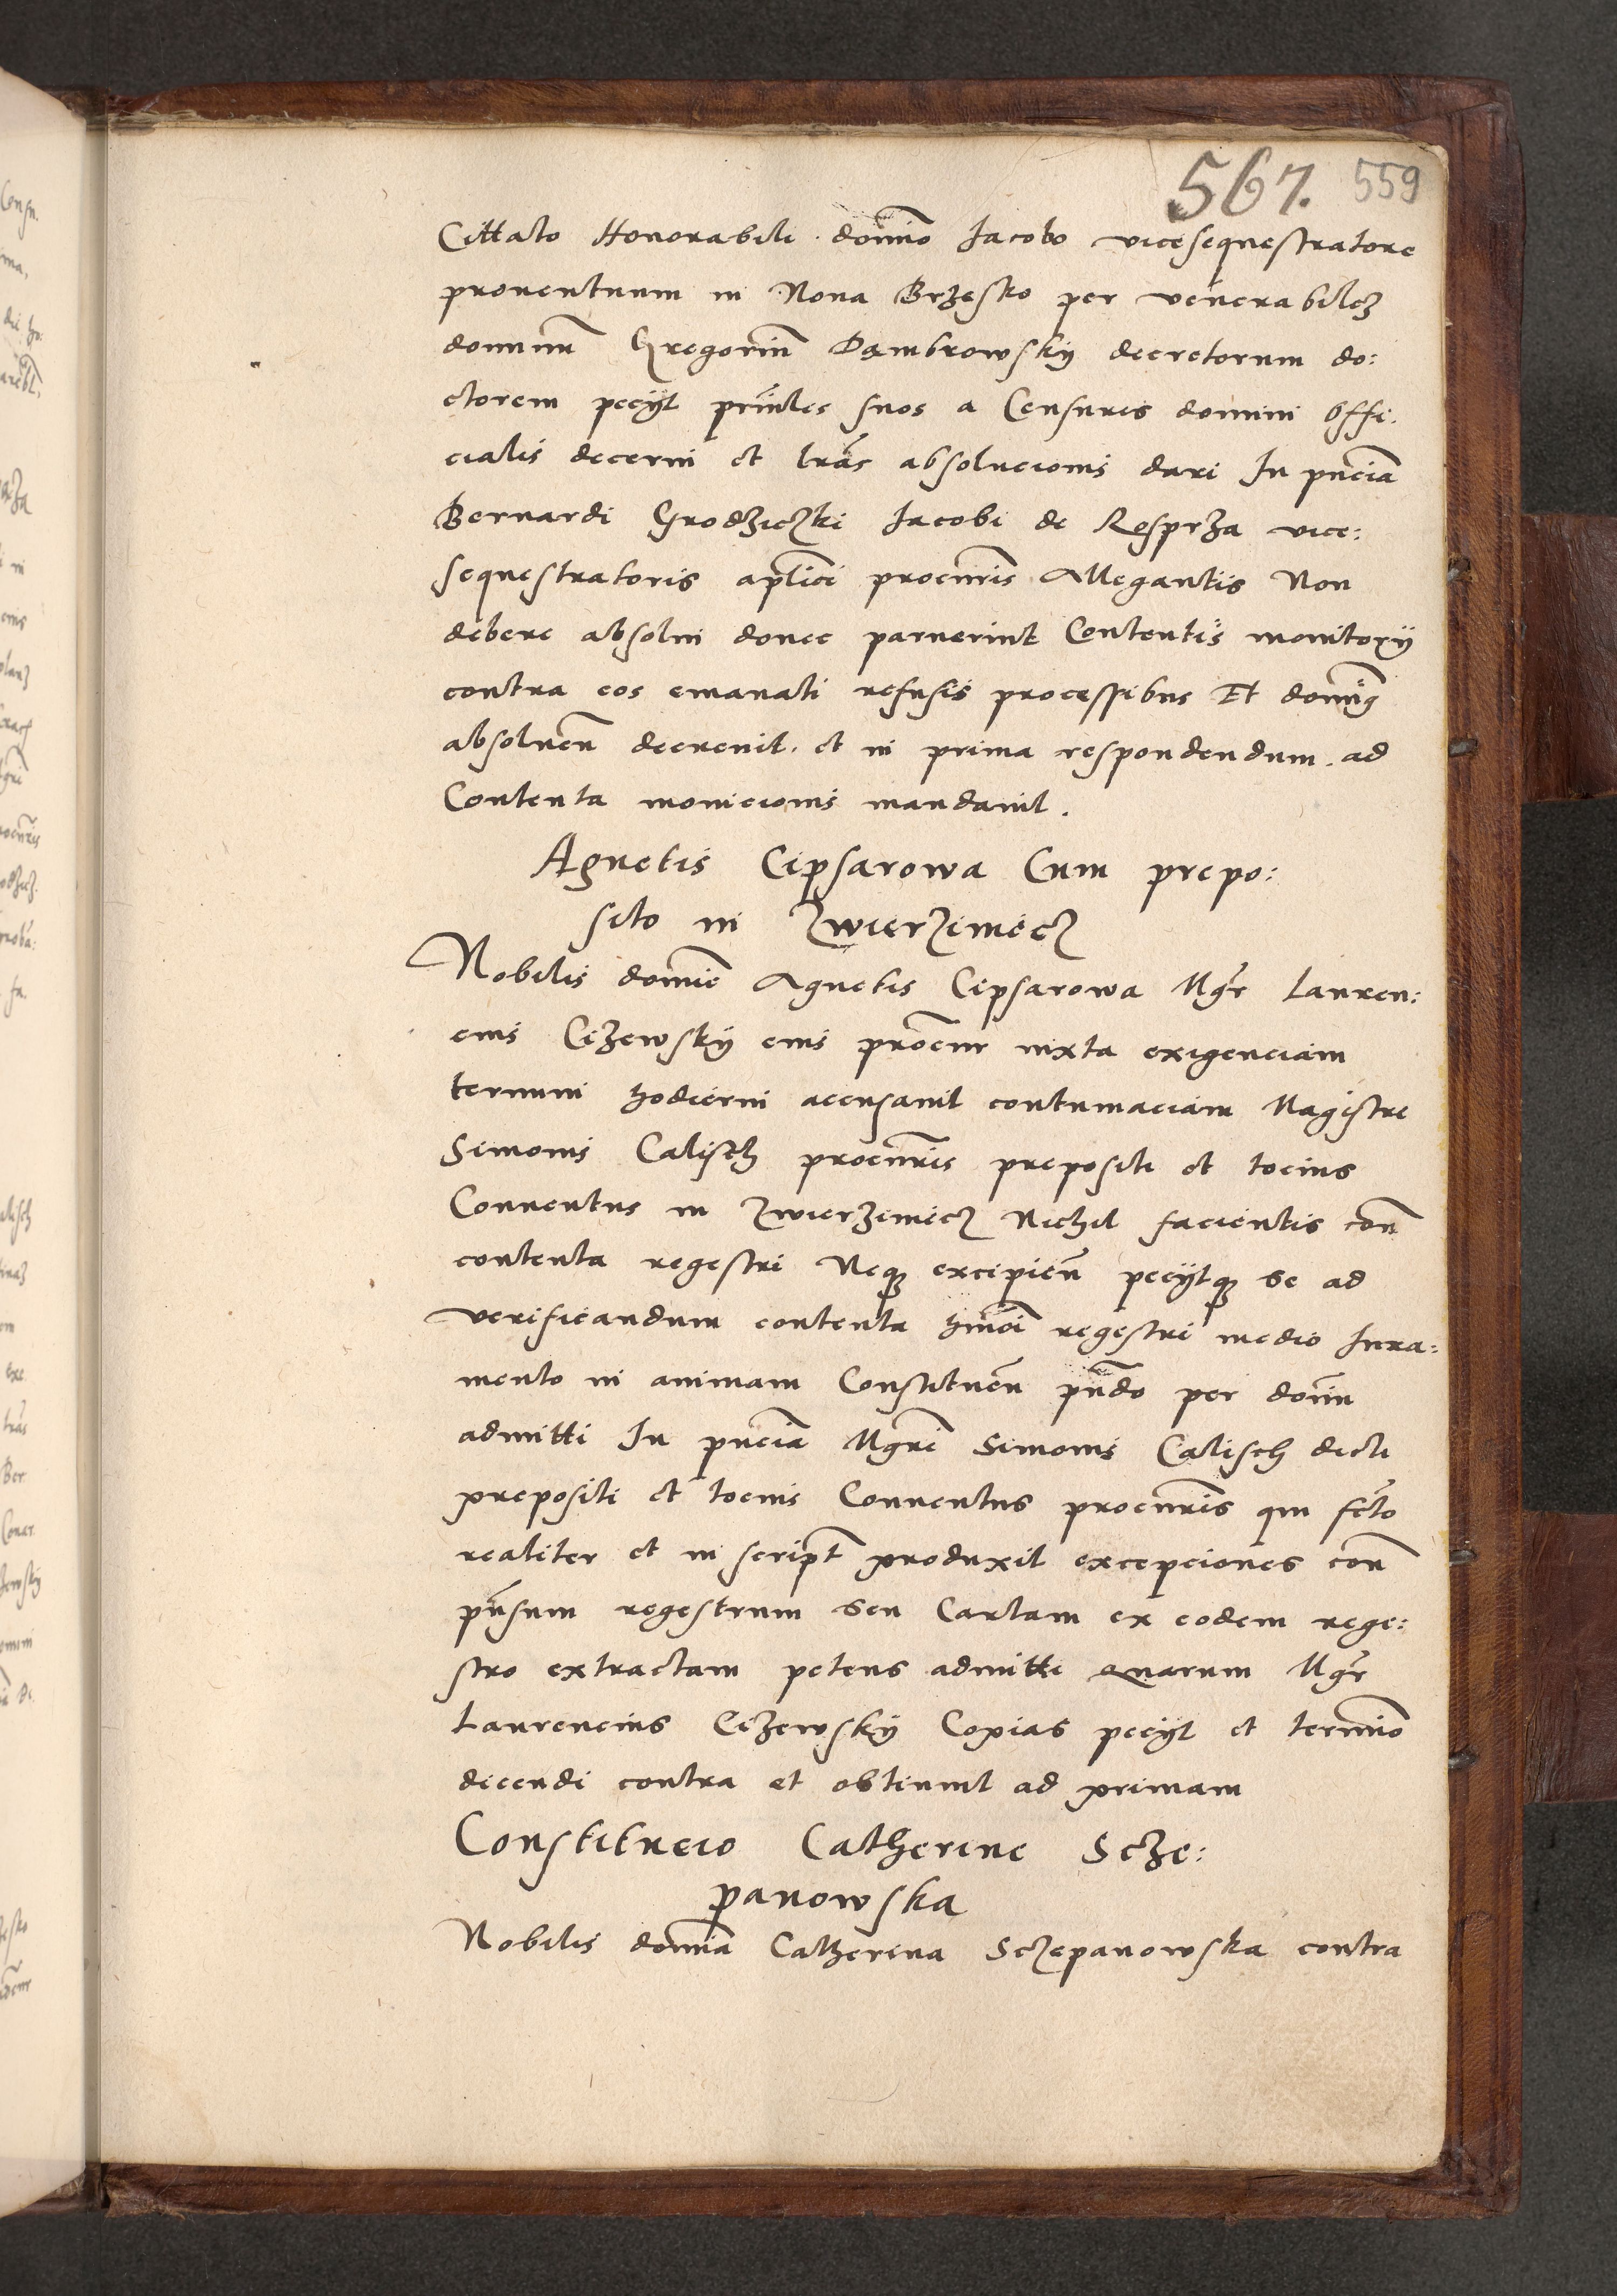 567. 559
Cittato Honorabili domino Iacobo vicesequestratore
proventuum in Nova Brzesko per venerabilez
dominum Gregorium Dambrowsky decretorum do:
ctorem peciit prīnles suos a Censuris domini Offi:
cialis decerni et lrās absolucionis dari In pn̄ciā
Bernardi Grodziczki Iacobi de Rosprza vice:
sequestratoris aplici procuris Allegantis Non
debere absolui donec paruerint Contentis monitorii
contra eos emanati refusis processibus Et domīg
absoluen̄ decreuit et in prima respondendum ad
Contenta monicionis mandauit.
Agnetis Cipsarowa Cum prepo:
sito in Zwierziniecz
Nobilis domīe Agnetis Cipsarowa Mgr̄ Lauren:
cius Cizewsky eius procur̄ iuxta exigenciam
termini hodierni accusauit contumaciam Magistri
Simonis Calisch procur̄is prepositi et tocius
Conuentus in Zwierziniecz Nichil facientis con̄
contenta regestri Neq3 excipien̄ peciitq3 se ad
verificandum contenta hmōi regestri medio Iura:
mento in animam Constituen̄ pn̄do per domīn
admitti In pn̄ciā Mgr̄i Simonis Calisch dicti
prepositi et tocius Conuentus procur̄is qui fcto
realiter et in script̄ produxit excepciones con̄
pn̄sum regestrum seu Cartam ex eodem rege:
stro extractam petens admitti Quarum Mgr̄
Laurencius Cizewsky Copias peciit et termīo
dicendi contra et obtinuit ad primam
Constitucio Catherine Scze:
panowska
Nobilis domīa Catherina Sczepanowska contra